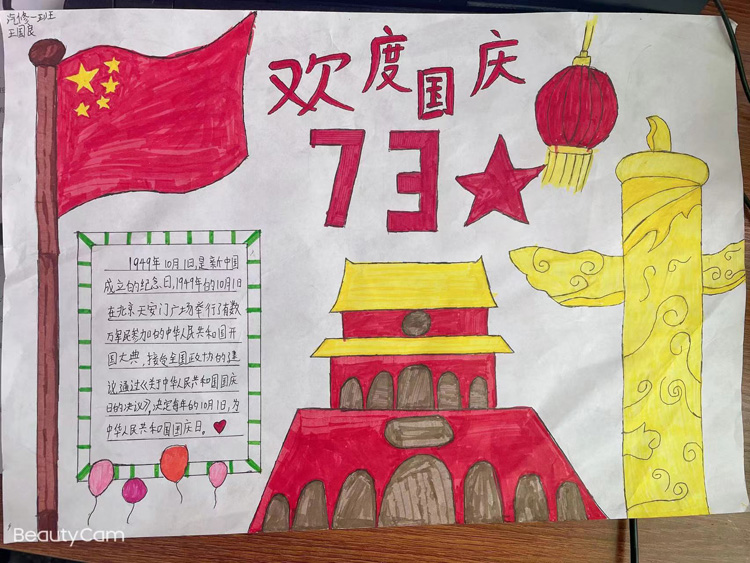 汽修一班王
王国良
欢度国庆
73
1949年10月1日,是新中国
成立的纪念日,1949年的10月1日
在北京天安门广场举行了有数
万军民参加的中华人民共和国开
国大典,接受全国政协的建
议通过《关于中华人民共和国国庆
日的决议》,决定每年的10月1日,为
中华人民共和国国庆日。
BeautyCam